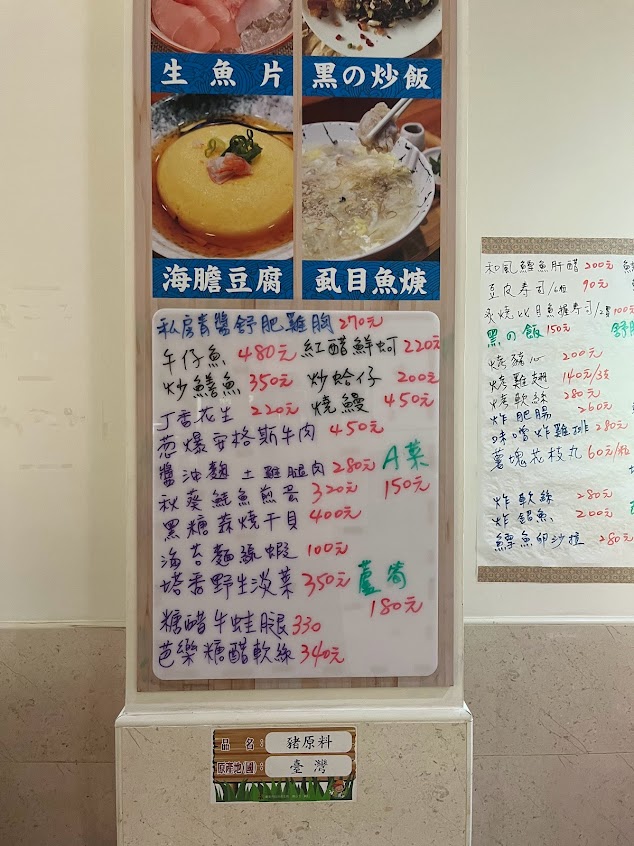 生魚片 黑の炒飯
海膽豆腐 虱目魚焿
私房青醬舒肥雞胸 270元
午仔魚 480元 紅醋鮮蚵 220元
炒鱔魚 350元 炒蛤仔 200元
丁香花生 220元 燒鰻 450元
蔥爆安格斯牛肉 450元
醬油麴土雞腿肉 280元 A菜
秋葵魩魚煎蛋 320元 150元
黑糖蒜燒干貝 400元
海苔麵線蝦 100元
塔香野生淡菜 350元 蘆筍
180元
糖醋牛蛙腿 330
芭樂糖醋軟絲 340元
品名： 豬原料
原產地(國)： 臺灣
和風鱈魚肝醋 200元
豆皮寿司/6個 90元
炙燒比目魚握寿司/2貫 100元
黑の飯 150元
烤豬心 200元
烤雞翅 140元/3支
烤軟絲 280元
炸肥腸 260元
味噌炸雞排 280元
薯塊花枝丸 60元/粒
炸軟絲 280元
炸䱛魚 200元
鱈魚卵沙拉 280元